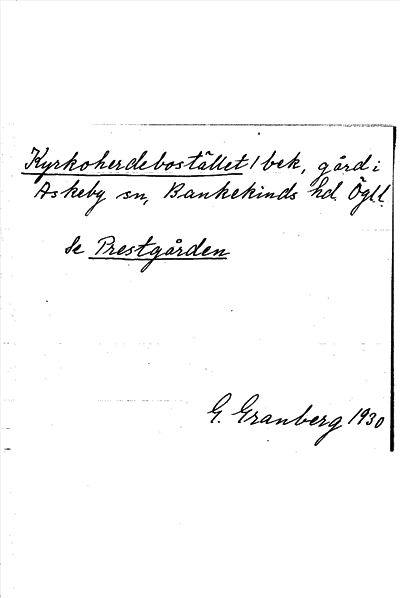 Kyrkoherdebostället 1 bek, gård i
Askeby sn, Bankekinds hd. Ögll.
Se Prestgården
G. Granberg 1930